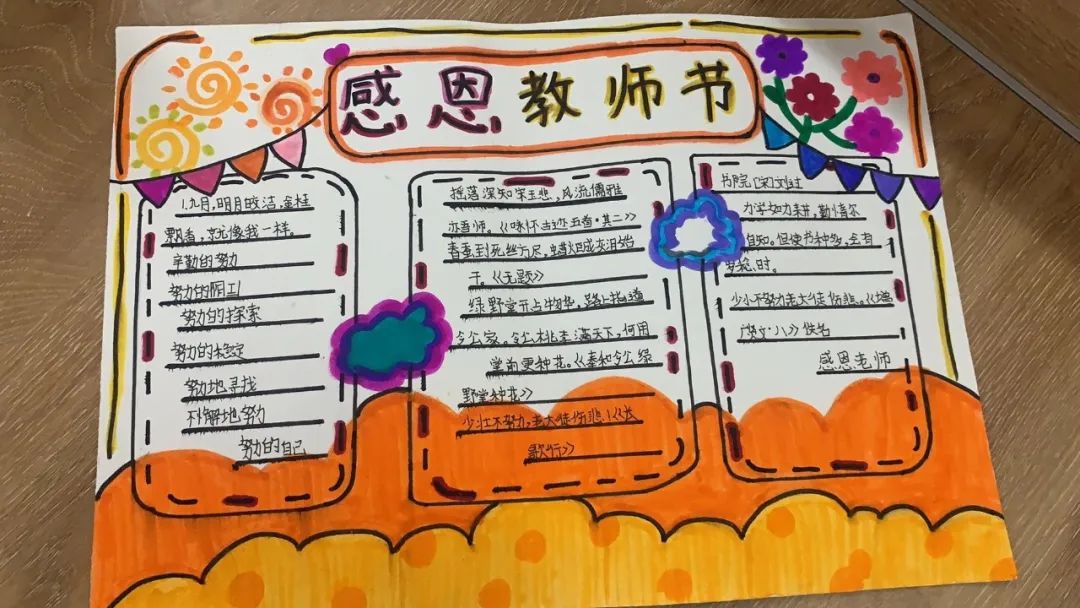 感恩教师节
1.九月,明月皎洁,金桂
飘香,就像我一样。
辛勤的努力
努力的
努力的探索
努力的
努力地寻找
不懈地努力
努力的自己
摇落深知宋玉悲,风流儒雅
亦吾师。《咏怀古迹五首·其二》
春蚕到死丝方尽,蜡炬成灰泪始
干。《无题》
绿野堂开占物华,路人指道
令公家。令公桃李满天下,何用
堂前更种花。《奉和令公绿
野堂种花》
少壮不努力,老大徒伤悲!《长
歌行》
书院[宋]刘过
力学如力耕,勤惰尔
自知。但使书种多,会有
岁稔时。
少小不努力老大徒伤悲。《增
广贤文·八》佚名
感恩老师